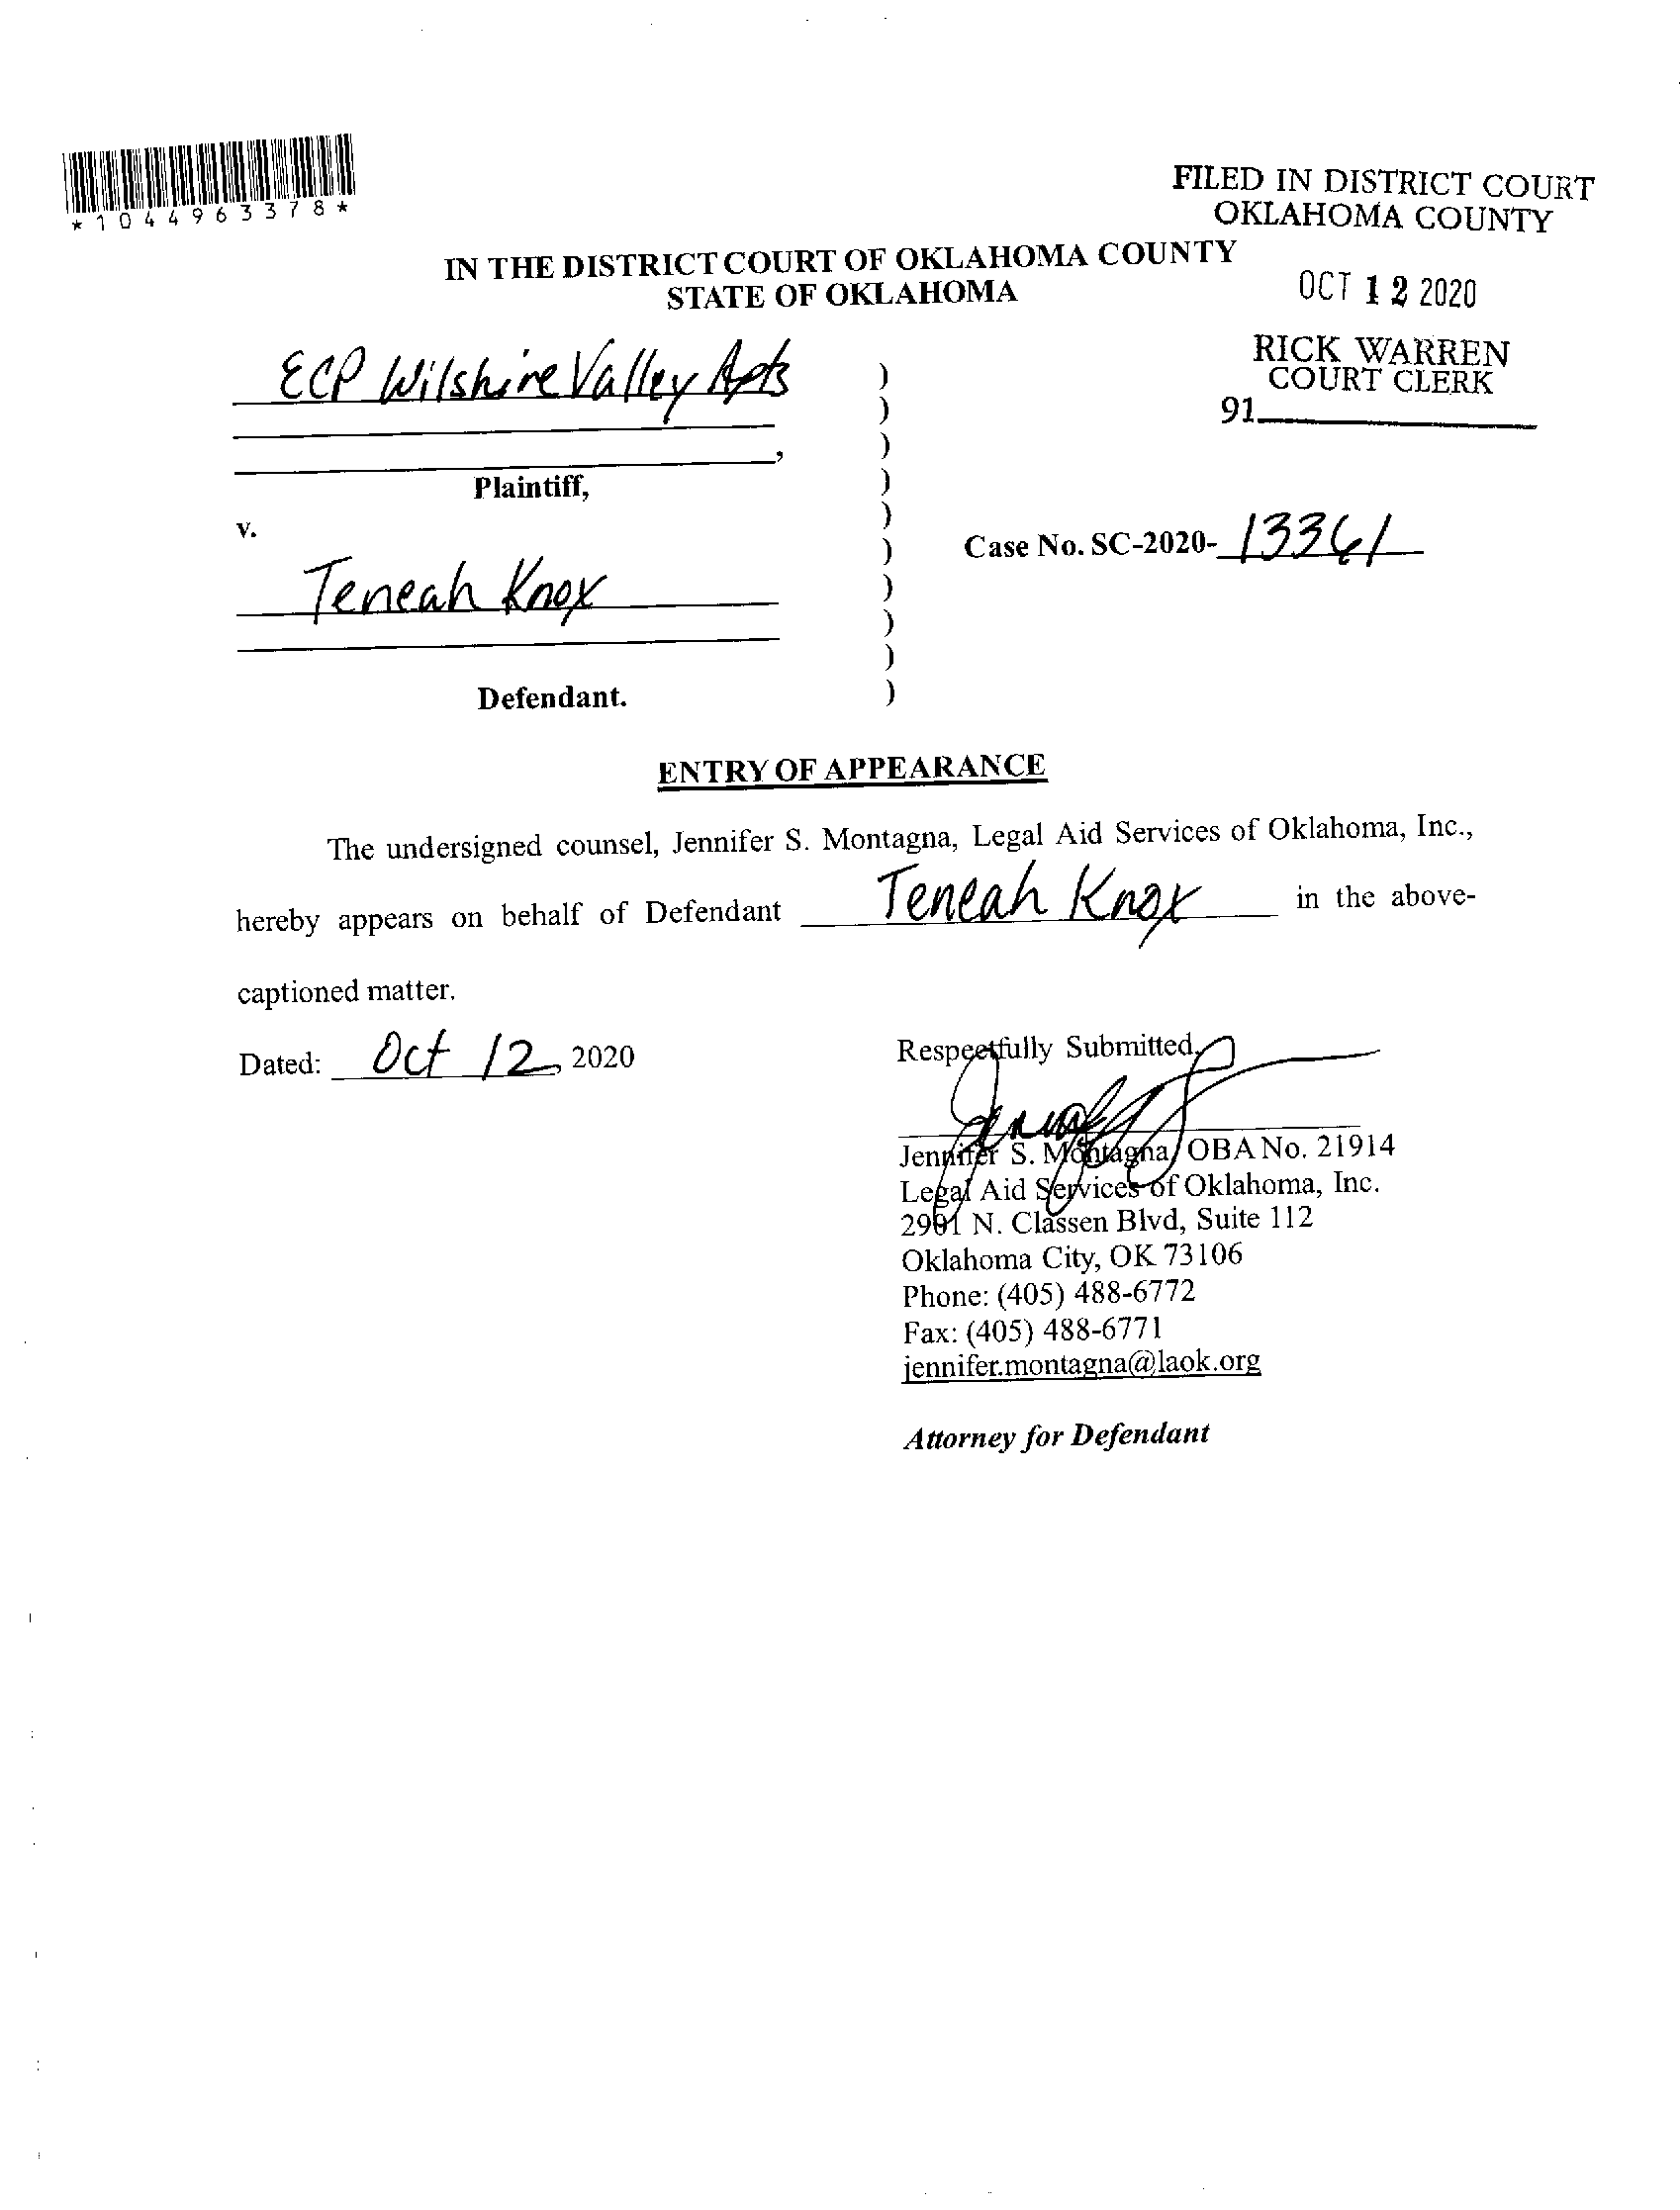 *1044963378*
FILED IN DISTRICT COURT
OKLAHOMA COUNTY
IN THE DISTRICT COURT OF OKLAHOMA COUNTY
STATE OF OKLAHOMA
OCT 12 2020
RICK WARREN
COURT CLERK
91
ECP Wilshire Valley Apts
)
)
)
,
Plaintiff,
)
)
v.
Case No. SC-2020- 13361
)
Teneah Knox
)
)
)
Defendant.
)
ENTRY OF APPEARANCE
The undersigned counsel, Jennifer S. Montagna, Legal Aid Services of Oklahoma, Inc.,
hereby appears on behalf of Defendant Teneah Knox in the above-
captioned matter.
Dated: Oct 12, 2020
Respectfully Submitted,
Jennifer S. Montagna, OBA No. 21914
Legal Aid Services of Oklahoma, Inc.
2901 N. Classen Blvd, Suite 112
Oklahoma City, OK 73106
Phone: (405) 488-6772
Fax: (405) 488-6771
jennifer.montagna@laok.org
Attorney for Defendant